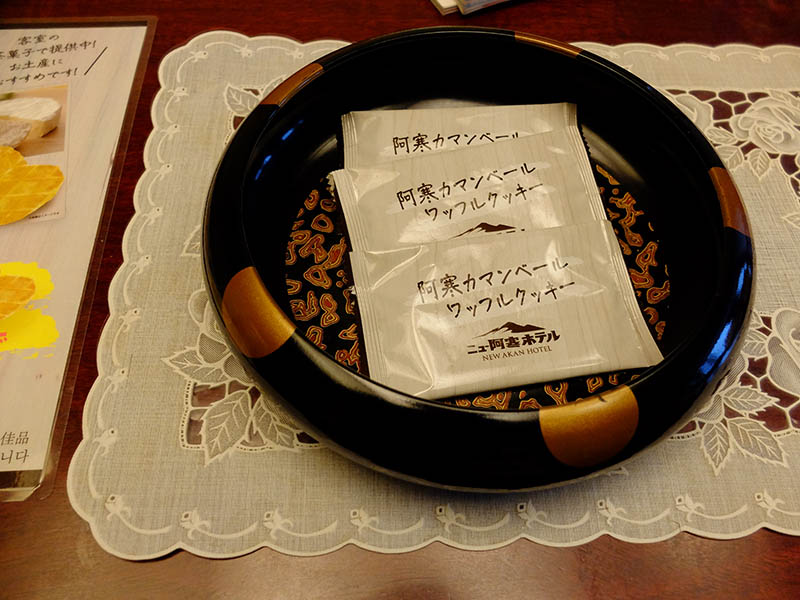 客室の
お茶菓子で提供中!
お土産に
おすすめです!
佳品
니다
阿寒カマンベール
阿寒カマンベール
ワッフルクッキー
阿寒カマンベール
ワッフルクッキー
ニュー阿寒ホテル
NEW AKAN HOTEL